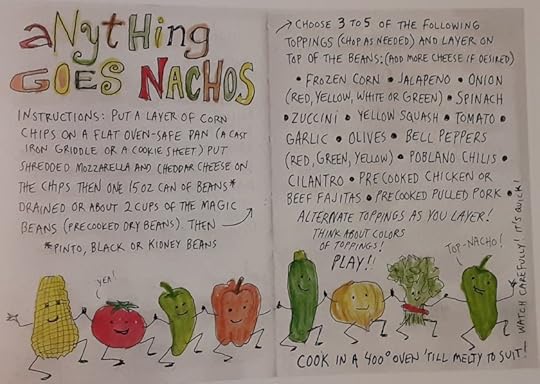 aNything
GOES NACHOS
INSTRUCTIONS: PUT A LAYER OF CORN
CHIPS ON A FLAT OVEN-SAFE PAN (A CAST
IRON GRIDDLE OR A COOKIE SHEET) PUT
SHREDDED MOZZARELLA AND CHEDDAR CHEESE ON
THE CHIPS THEN ONE 15 OZ CAN OF BEANS*
DRAINED OR ABOUT 2 CUPS OF THE MAGIC
BEANS (PRECOOKED DRY BEANS). THEN →
*PINTO, BLACK OR KIDNEY BEANS
YEA!
→ CHOOSE 3 TO 5 OF THE FOLLOWING
TOPPINGS (CHOP AS NEEDED) AND LAYER ON
TOP OF THE BEANS: (ADD MORE CHEESE IF DESIRED)
• FROZEN CORN • JALAPENO • ONION
(RED, YELLOW, WHITE OR GREEN) • SPINACH
• ZUCCINI • YELLOW SQUASH • TOMATO •
GARLIC • OLIVES • BELL PEPPERS
(RED, GREEN, YELLOW) • POBLANO CHILIS •
CILANTRO • PRECOOKED CHICKEN OR
BEEF FAJITAS • PRECOOKED PULLED PORK •
ALTERNATE TOPPINGS AS YOU LAYER!
THINK ABOUT COLORS
OF TOPPINGS!
PLAY!!
TOP-NACHO!
COOK IN A 400° OVEN 'TILL MELTY TO SUIT!
WATCH CAREFULLY! IT'S QUICK!